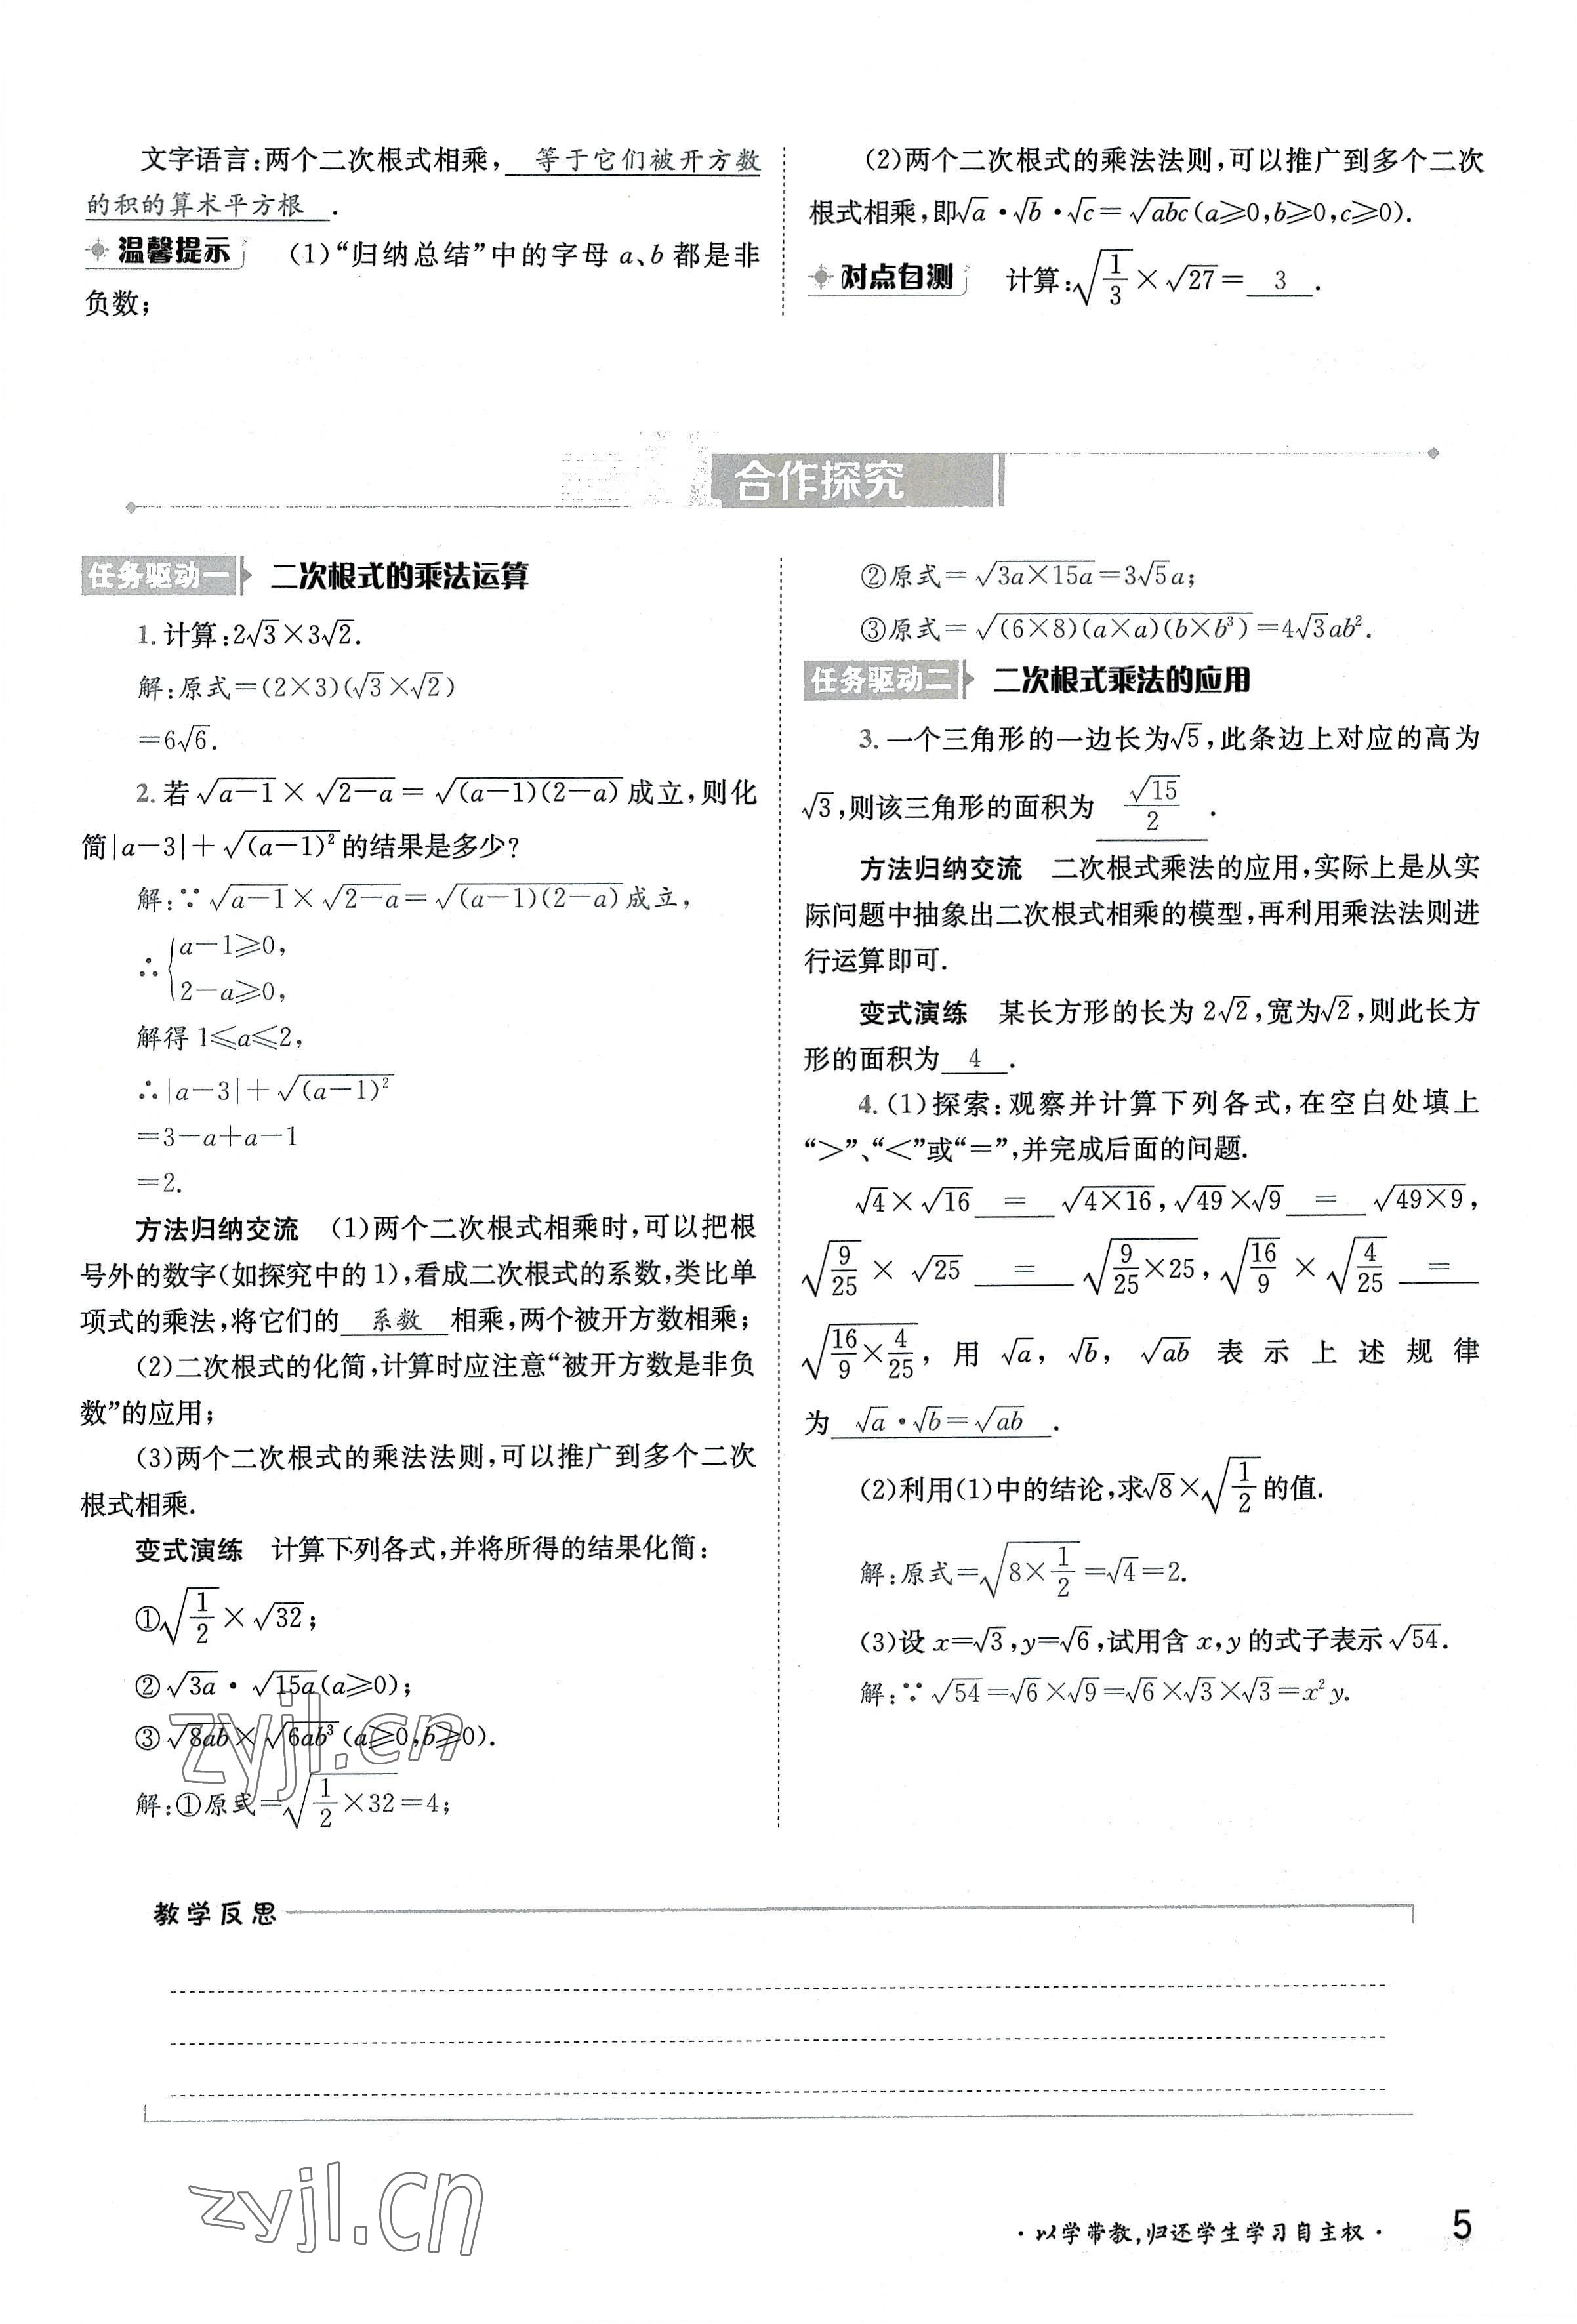 文字语言:两个二次根式相乘, 等于它们被开方数
的积的算术平方根 .
温馨提示 (1)“归纳总结”中的字母 a、b 都是非
负数;
(2)两个二次根式的乘法法则,可以推广到多个二次
根式相乘,即√a·√b·√c=√abc(a≥0,b≥0,c≥0).
对点自测 计算:√(1/3)×√27= 3 .
合作探究
任务驱动一 二次根式的乘法运算
1.计算:2√3×3√2.
解:原式=(2×3)(√3×√2)
=6√6.
2.若√(a-1)×√(2-a)=√((a-1)(2-a))成立,则化
简|a-3|+√((a-1)²)的结果是多少?
解:∵√(a-1)×√(2-a)=√((a-1)(2-a))成立,
∴{a-1≥0,
2-a≥0,
解得 1≤a≤2,
∴|a-3|+√((a-1)²)
=3-a+a-1
=2.
方法归纳交流 (1)两个二次根式相乘时,可以把根
号外的数字(如探究中的1),看成二次根式的系数,类比单
项式的乘法,将它们的 系数 相乘,两个被开方数相乘;
(2)二次根式的化简,计算时应注意“被开方数是非负
数”的应用;
(3)两个二次根式的乘法法则,可以推广到多个二次
根式相乘.
变式演练 计算下列各式,并将所得的结果化简:
①√(1/2)×√32;
②√3a·√15a(a≥0);
③√8ab×√6ab³(a≥0,b≥0).
解:①原式=√(1/2×32)=4;
②原式=√(3a×15a)=3√5a;
③原式=√((6×8)(a×a)(b×b³))=4√3ab².
任务驱动二 二次根式乘法的应用
3.一个三角形的一边长为√5,此条边上对应的高为
√3,则该三角形的面积为 √15/2 .
方法归纳交流 二次根式乘法的应用,实际上是从实
际问题中抽象出二次根式相乘的模型,再利用乘法法则进
行运算即可.
变式演练 某长方形的长为 2√2,宽为√2,则此长方
形的面积为 4 .
4.(1)探索:观察并计算下列各式,在空白处填上
“>”、“<”或“=”,并完成后面的问题.
√4×√16 = √(4×16),√49×√9 = √(49×9),
√(9/25)×√25 = √(9/25×25),√(16/9)×√(4/25) =
√(16/9×4/25),用 √a,√b,√ab 表示上述规律
为 √a·√b=√ab .
(2)利用(1)中的结论,求√8×√(1/2)的值.
解:原式=√(8×1/2)=√4=2.
(3)设 x=√3,y=√6,试用含 x,y 的式子表示√54.
解:∵√54=√6×√9=√6×√3×√3=x²y.
zyjl.cn
教学反思
zyjl.cn
·以学带教,归还学生学习自主权· 5